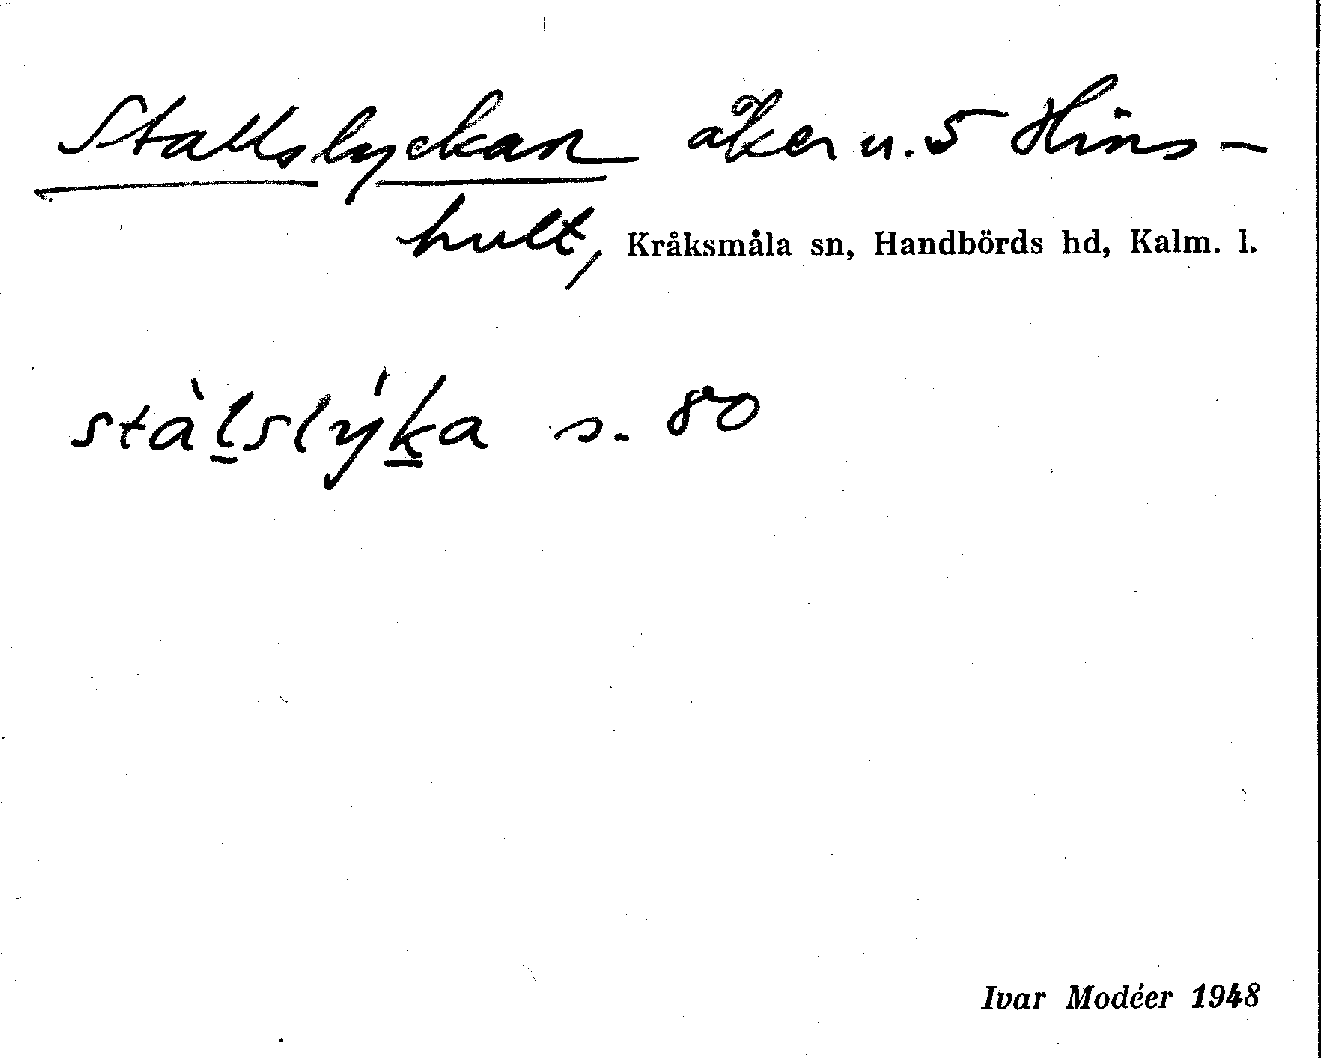 Stallslyckan åker u. 5 Hins-
hult, Kråksmåla sn, Handbörds hd, Kalm. l.
stàl̠slýk̠a s. 80
Ivar Modéer 1948